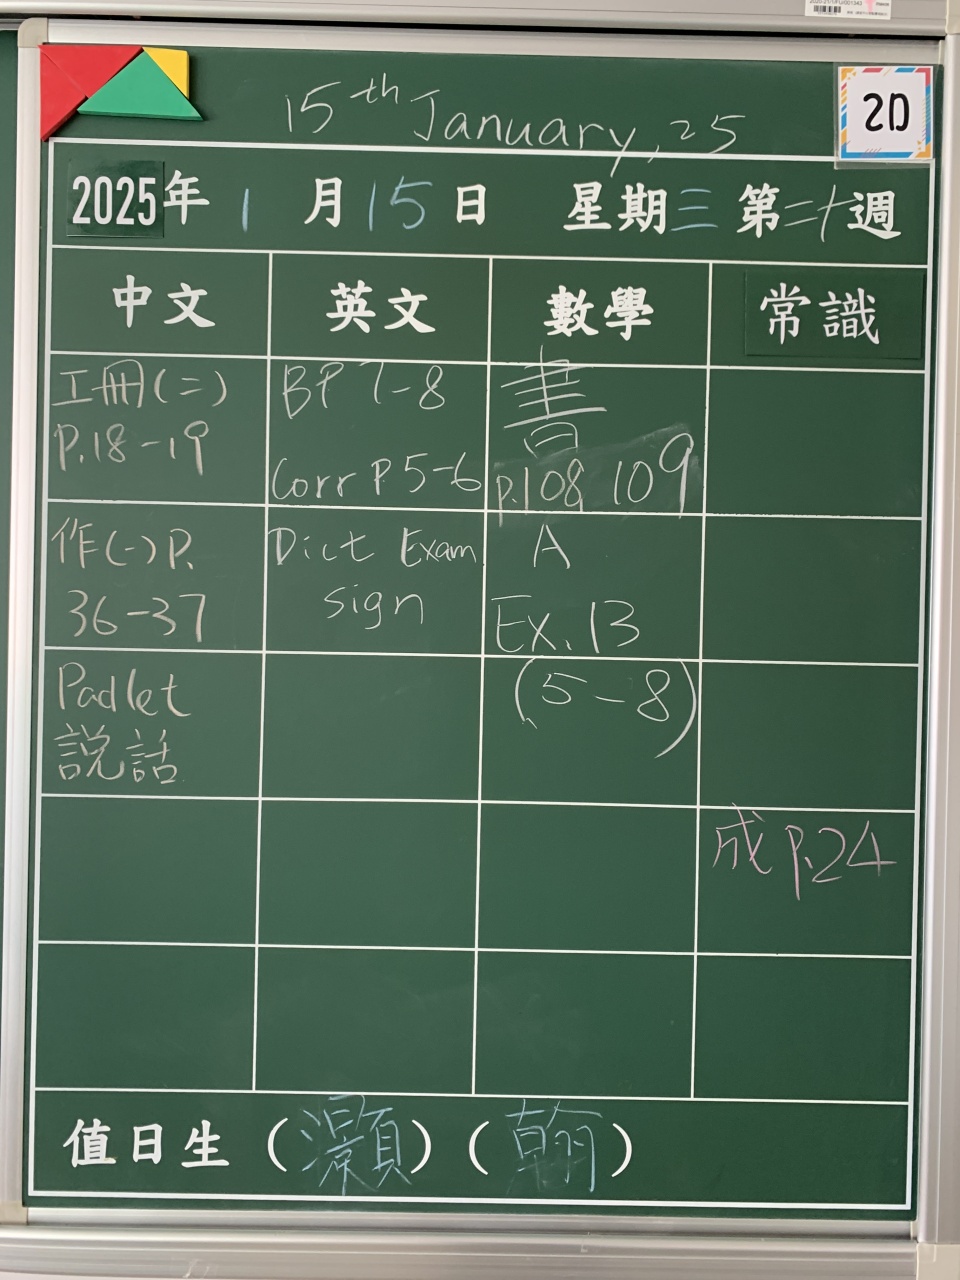 15th January, 25
2D
2025年 1 月 15 日 星期三 第二十週
中文 英文 數學 常識
工冊(二)
P.18-19
BP 7-8
Corr P.5-6
書
p.108, 109
作(一)P.
36-37
Dict Exam
sign
A
Ex. 13
(5-8)
Padlet
説話
成 p.24
值日生 (灝) (翰)